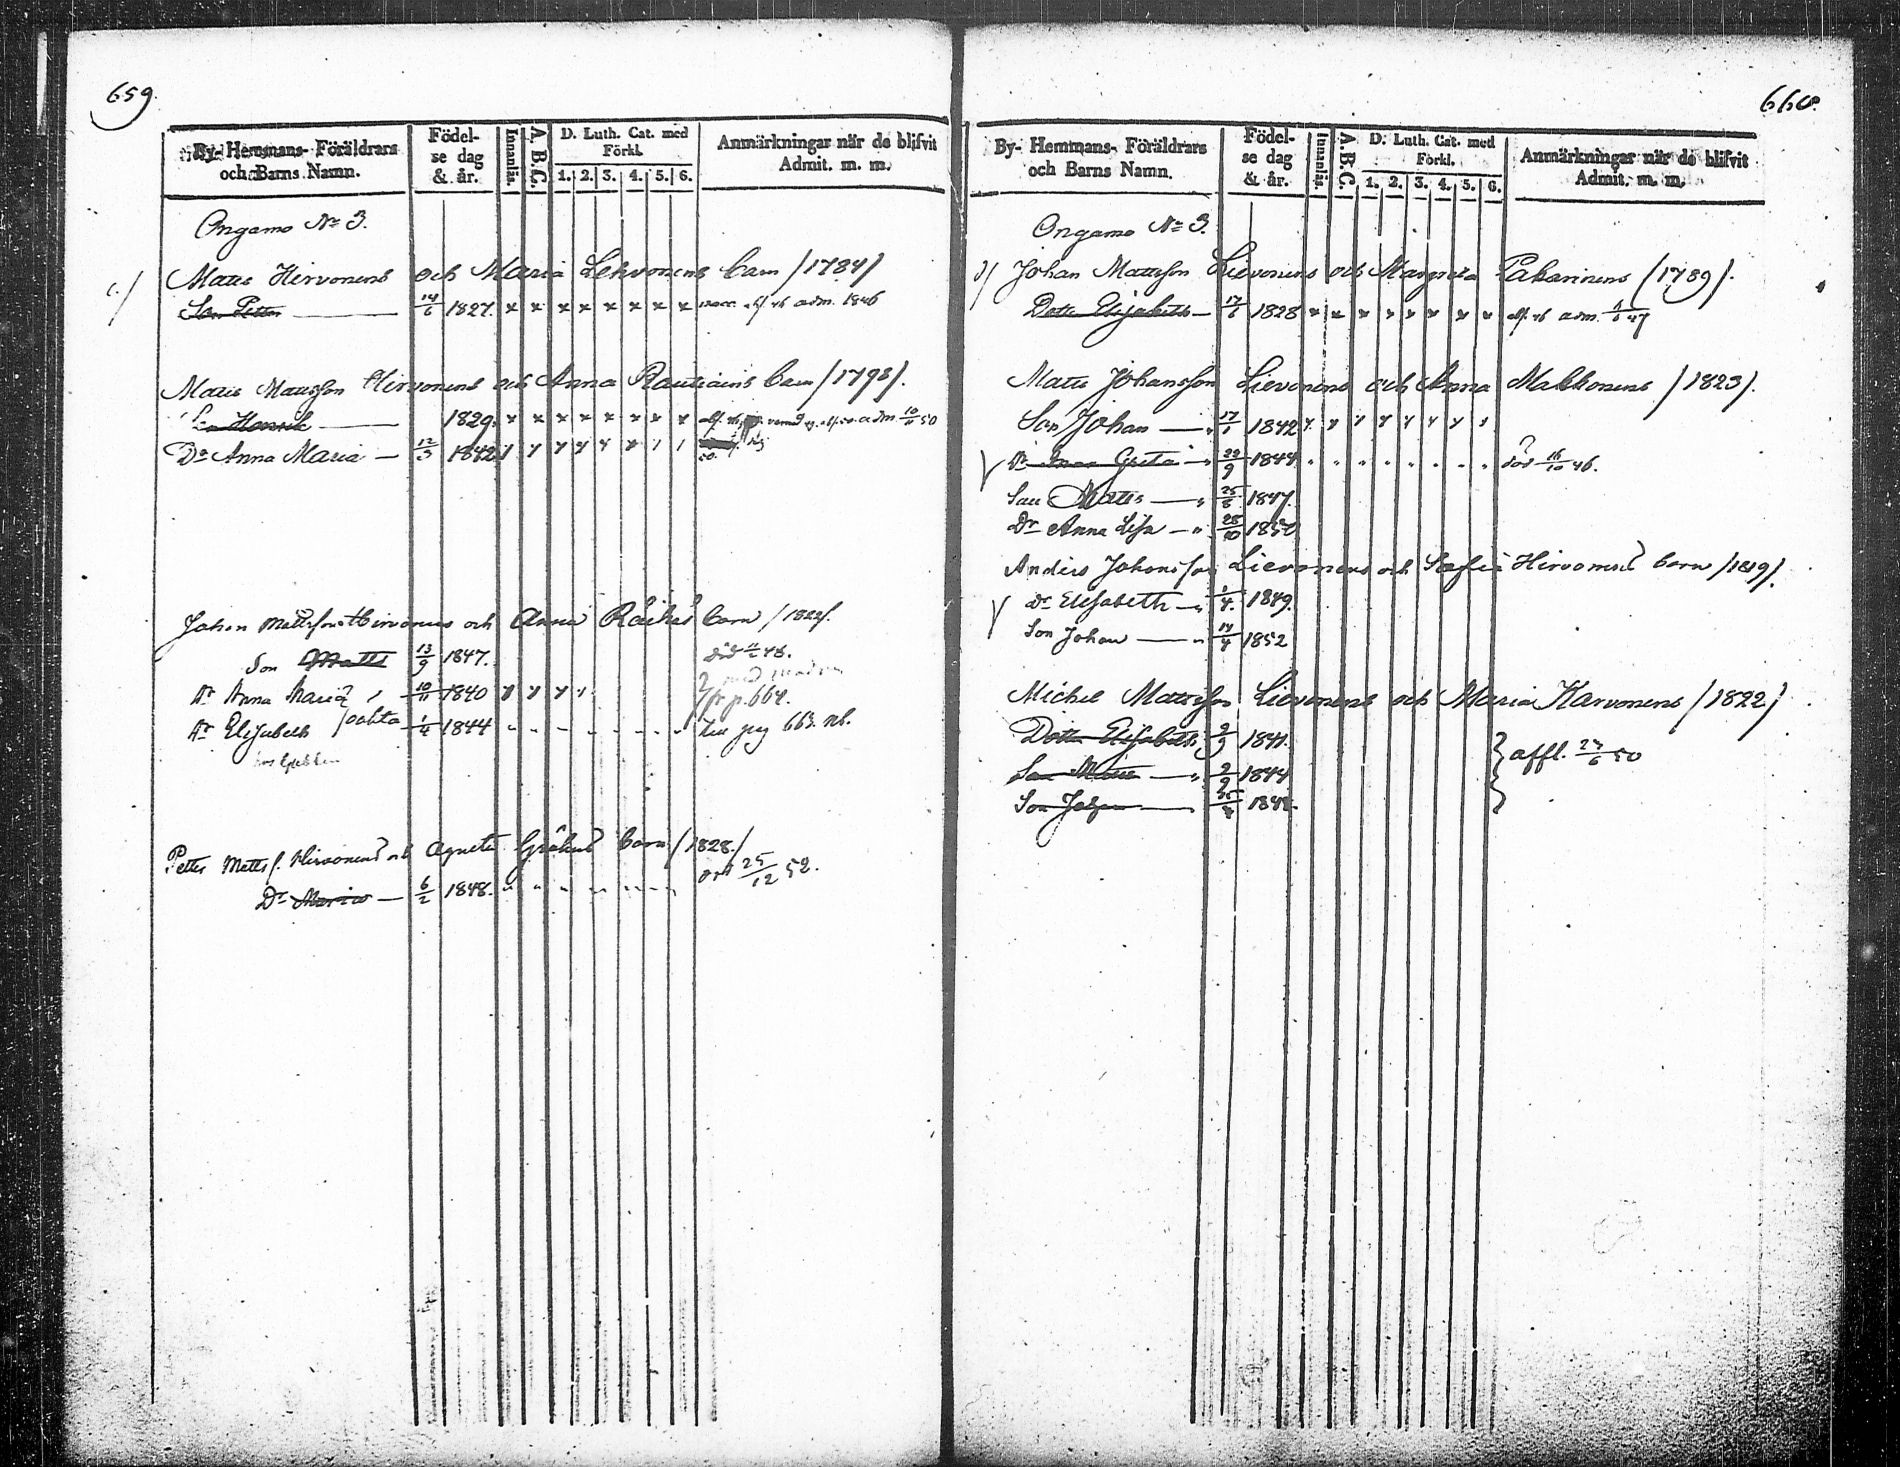 659.
By- Hemmans- Föräldrars och Barns Namn.
Födel-se dag & år.
Innanläs.
A. B. C.
D. Luth. Cat. med Förkl.
1. 2. 3. 4. 5. 6.
Anmärkningar när de blifvit Admit. m. m.
Ongamo № 3.
c./ Matts Hirvonens och Maria Lehvonens barn /1784/
Son Petter 14/6 1827. x x x x x x x x adm. 1846
Matts Mattsson Hirvonens och Anna Rautiains barn /1798/.
Son Henrik 1829. x x x x x x x x adm 10/11 50
Dr Anna Maria 12/3 1842
Johan Mattsson Hirvonens och Anna Räihäs barn /1822/.
Son Matts 13/9 1847. död 48.
Dr Anna Maria 10/11 1840 fr p. 664.
Dr Elisabeth 1/4 1844 pag 663. nb.
Petter Matts f. Hirvonens och Agneta barn /1828/
Dr Maria 6/2 1848. död 25/12 52.
660.
By- Hemmans- Föräldrars och Barns Namn.
Födel-se dag & år.
Innanläs.
A. B. C.
D. Luth. Cat. med Förkl.
1. 2. 3. 4. 5. 6.
Anmärkningar när de blifvit Admit. m. m.
Ongamo № 3.
d/ Johan Mattsson Lievonens och Margreta Pakarinens /1789/.
Dotter Elisabeth 17/6 1828 x x x x x x x x adm. 47
Matts Johansson Lievonens och Anna Malkonens /1823/.
Son Johan 17/1 1842
Dr Anna Greta 29/9 1844 död 16/10 46.
Son Matts 25/8 1847.
Dr Anna Lisa 28/10 1850
Anders Johansson Lievonens och Sofia Hirvonens barn /1819/.
Dr Elisabeth 1/4 1849.
Son Johan 14/4 1852
Michel Mattsson Lievonens och Maria Karvonens /1822/
Dotter Elisabeth 2/9 1841.
Son Matts 2/9 1844 affl. 23/6 50
Son Johan 1848.